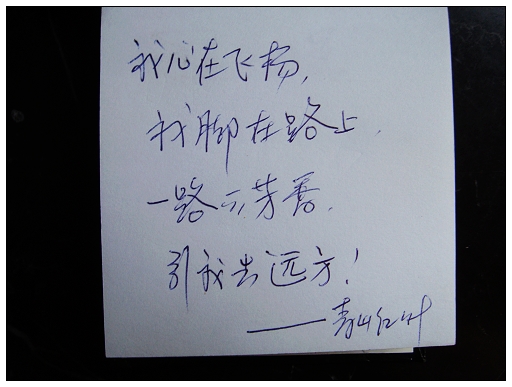 我心在飞扬，
我脚在路上．
一路六芳香．
引我去远方！
——青山红叶